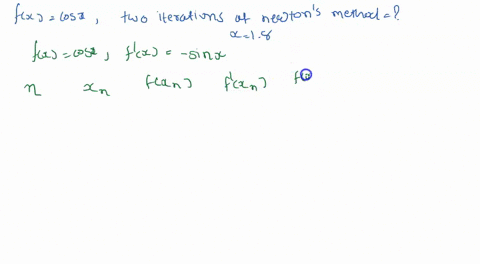 f(x) = cosx, two iterations of newton's method = ?
x=1.8
f(x) = cosx, f'(x) = -sinx
n xₙ f(xₙ) f'(xₙ)